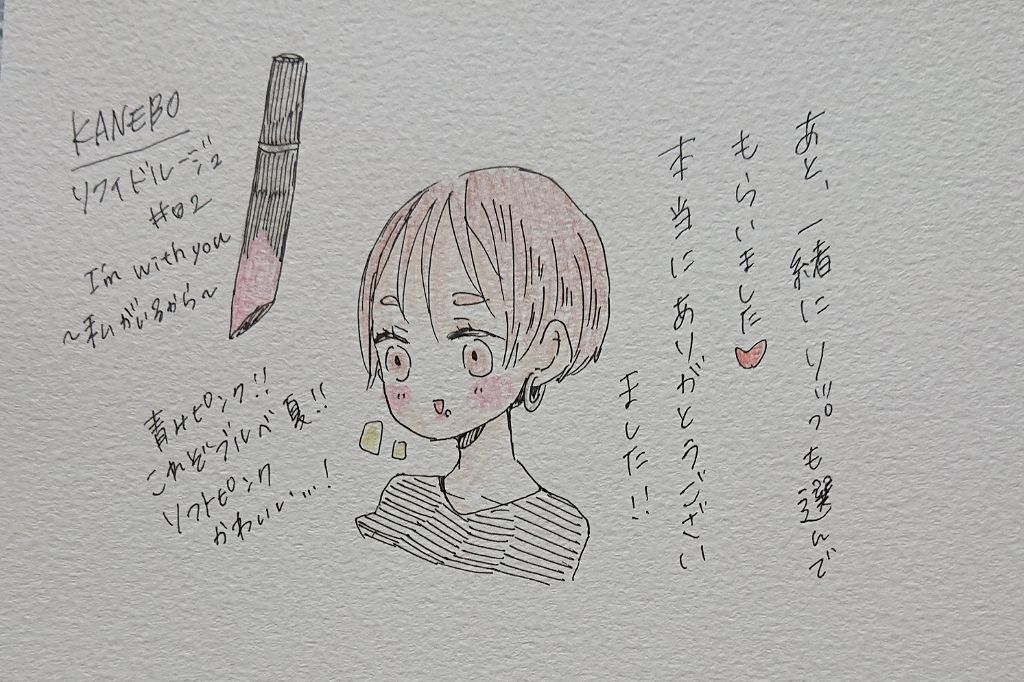 KANEBO
リクイドルージュ
#02
I'm with you
~私がいるから~
青みピンク!!
これぞブルベ夏!!
ソフトピンク
かわいい…!
あと、一緒にリップも選んで
もらいました
本当にありがとうござい
ました!!